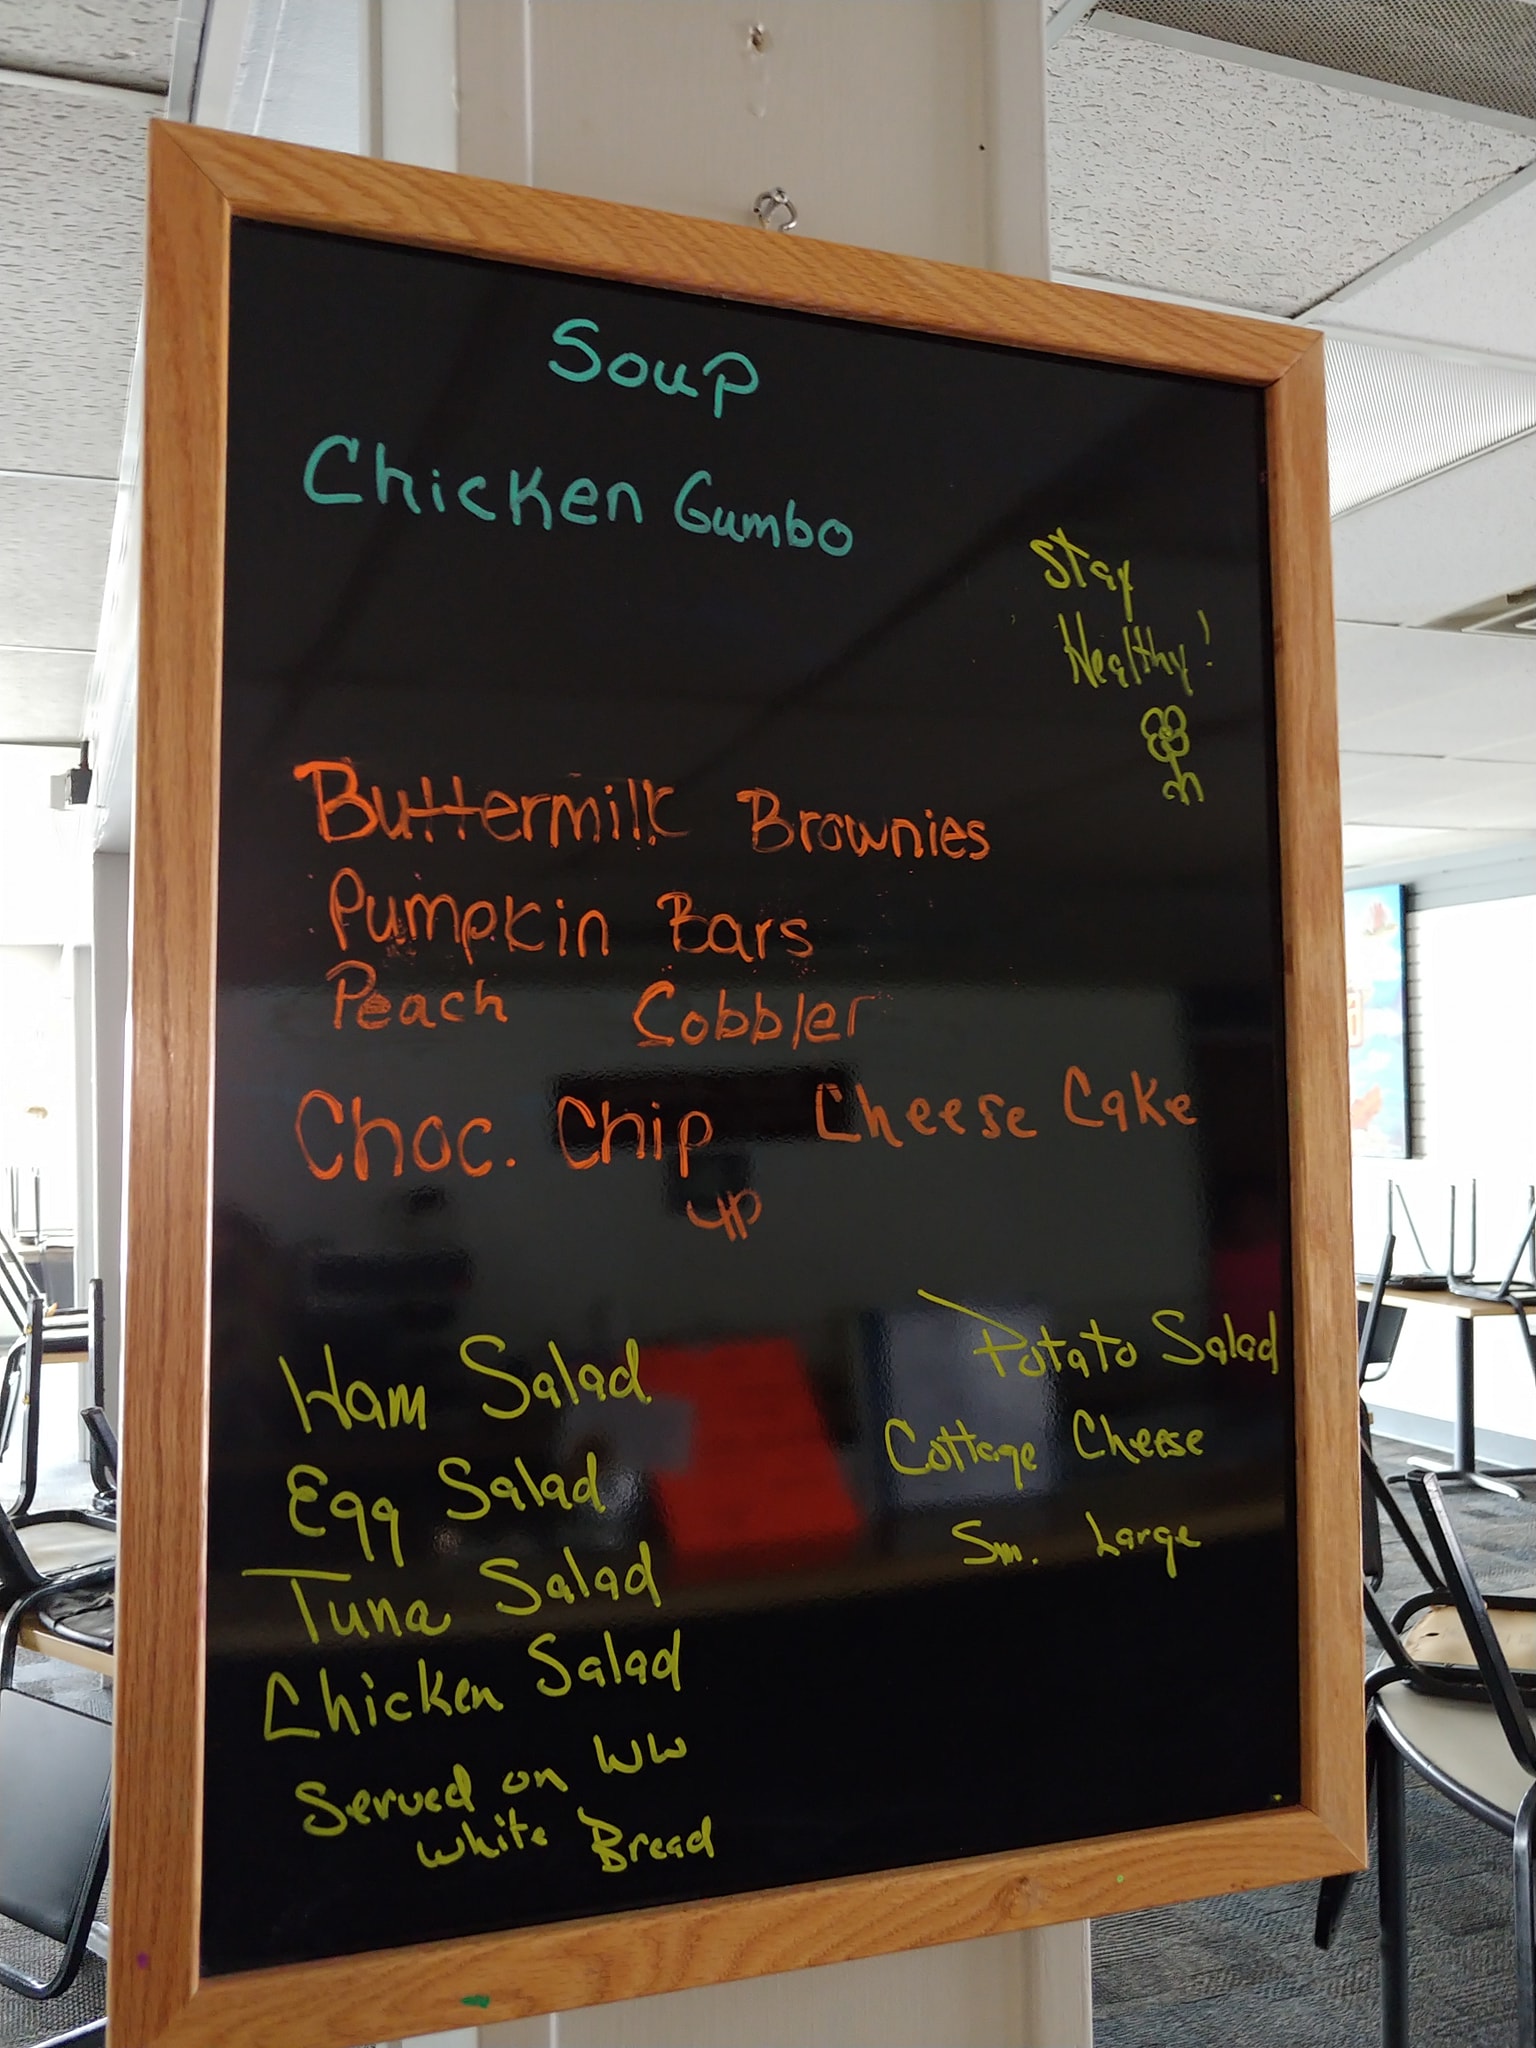 Soup
Chicken Gumbo
Stay
Healthy!
Buttermilk Brownies
Pumpkin Bars
Peach Cobbler
Choc. Chip Cheese Cake
Ham Salad
Egg Salad
Tuna Salad
Chicken Salad
Served on WW
White Bread
Potato Salad
Cottage Cheese
Sm. Large